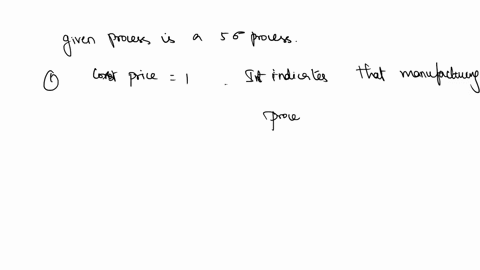 given process is a 5σ process.
① Cost price = 1 . It indicates that manufacturing
proce